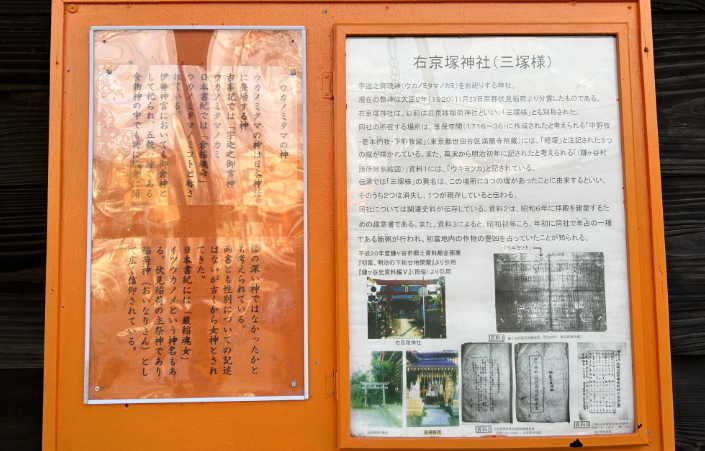 ウカノミタマの神
ウカノミタマの神は日本神話
に登場する神
古事記では「宇迦之御霊神
ウカノミタマノカミ
日本書記では「倉稲魂命」
ウカノミタマノミコトと称さ
れている。
伊勢神宮においても御倉神と
して祀られ、五穀の神である
食物神の中でも特に
係の深い神ではなかったかと
も考えられている。
両書とも性別についての記述
はないが古くから女神とされ
てきた。
日本書紀には「厳稲魂女」
イツウカノメという神名もあ
る。伏見稲荷の主祭神であり
稲荷神（おいなりさん）とし
て広く信仰されている。
右京塚神社（三塚様）
宇迦之御魂神（ウカノミタマノカミ）をお祀りする神社。
現在の祭神は大正9年（1920）11月23日京都伏見稲荷より分霊したものである。
右京塚神社は、以前は右京塚稲荷神社といい、「三塚様」とも別称された。
同社の所在する場所は、享保年間（1716～36）に作成されたと考えられる「中野牧
・下野牧図」（東京都世田谷区満願寺所蔵）には、「経塚」と注記された3つ
の塚が描かれている。また、幕末から明治初年に記されたと考えられる「（鎌ヶ谷村
請所地割絵図）」資料1には、「ウキョツカ」と記されている。
伝承では「三塚様」の異名は、この場所に3つの塚があったことに由来するといい、
そのうち2つは消失し、1つが現存していると伝わる。
同社については関連史料が伝存している。資料2は、昭和6年に拝殿を建築するた
めの趣意書である。また、資料3によると、昭和初年ころ、年初に同社で年占の一種
である筒粥が行われ、初富地内の作物の豊凶を占っていたことが知られる。
平成20年度鎌ヶ谷市郷土資料館企画展
『初富、明治の下総台地開墾』より引用
『鎌ヶ谷史資料編Ⅴ』（民俗）より引用
「ウキョツカ」
右京塚神社
資料1
資料2
資料3